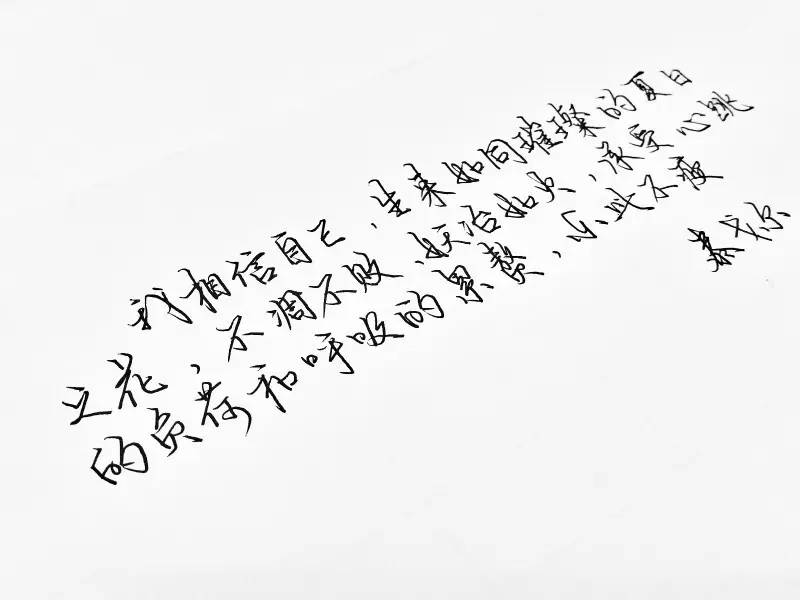 我相信自己，生来如同璀璨的夏日
之花，不凋不败，妖冶如火，承受心跳
的负荷和呼吸的累赘，乐此不疲
泰戈尔